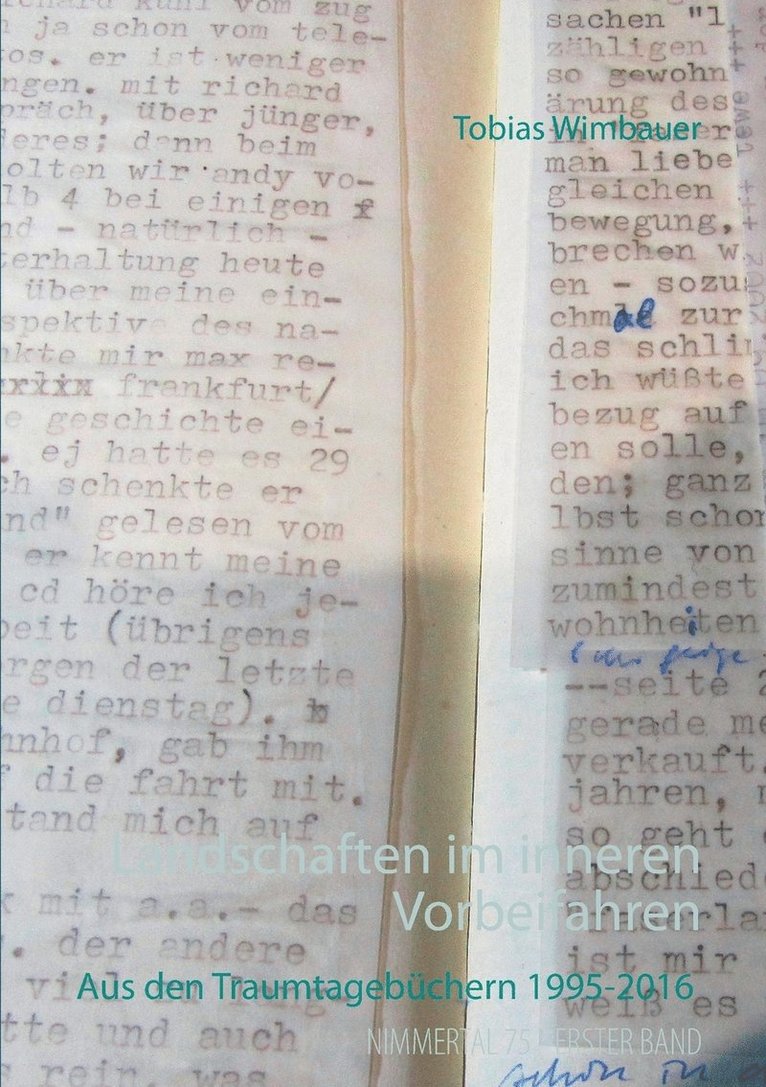 Tobias Wimbauer
Landschaften im inneren
Vorbeifahren
Aus den Traumtagebüchern 1995-2016
NIMMERTAL 75 ERSTER BAND
vom zug
ja schon vom tele-
os. er ist weniger
ngen. mit richard
präch, über jünger,
deres; dann beim
olten wir andy vo-
lb 4 bei einigen f
nd - natürlich -
terhaltung heute
über meine ein-
spektive des na-
nkte mir max re-
frankfurt/
e geschichte ei-
. ej hatte es 29
ch schenkte er
nd" gelesen vom
er kennt meine
cd höre ich je-
beit (übrigens
rgen der letzte
e dienstag). h
hnhof, gab ihm
f die fahrt mit.
tand mich auf
mit a.a.- das
. der andere
tte und auch
s rein, was
sachen "l
zähligen
so gewohn
ärung des
man liebe
gleichen
bewegung,
brechen w
en - sozu
chmal zur
das schli
ich wüßte
bezug auf
en solle,
den; ganz
lbst schon
sinne von
zumindest
wohnheiten
--seite 2
gerade me
verkauft.
jahren,
so geht
abschied
ist mir
weiß es
schon in